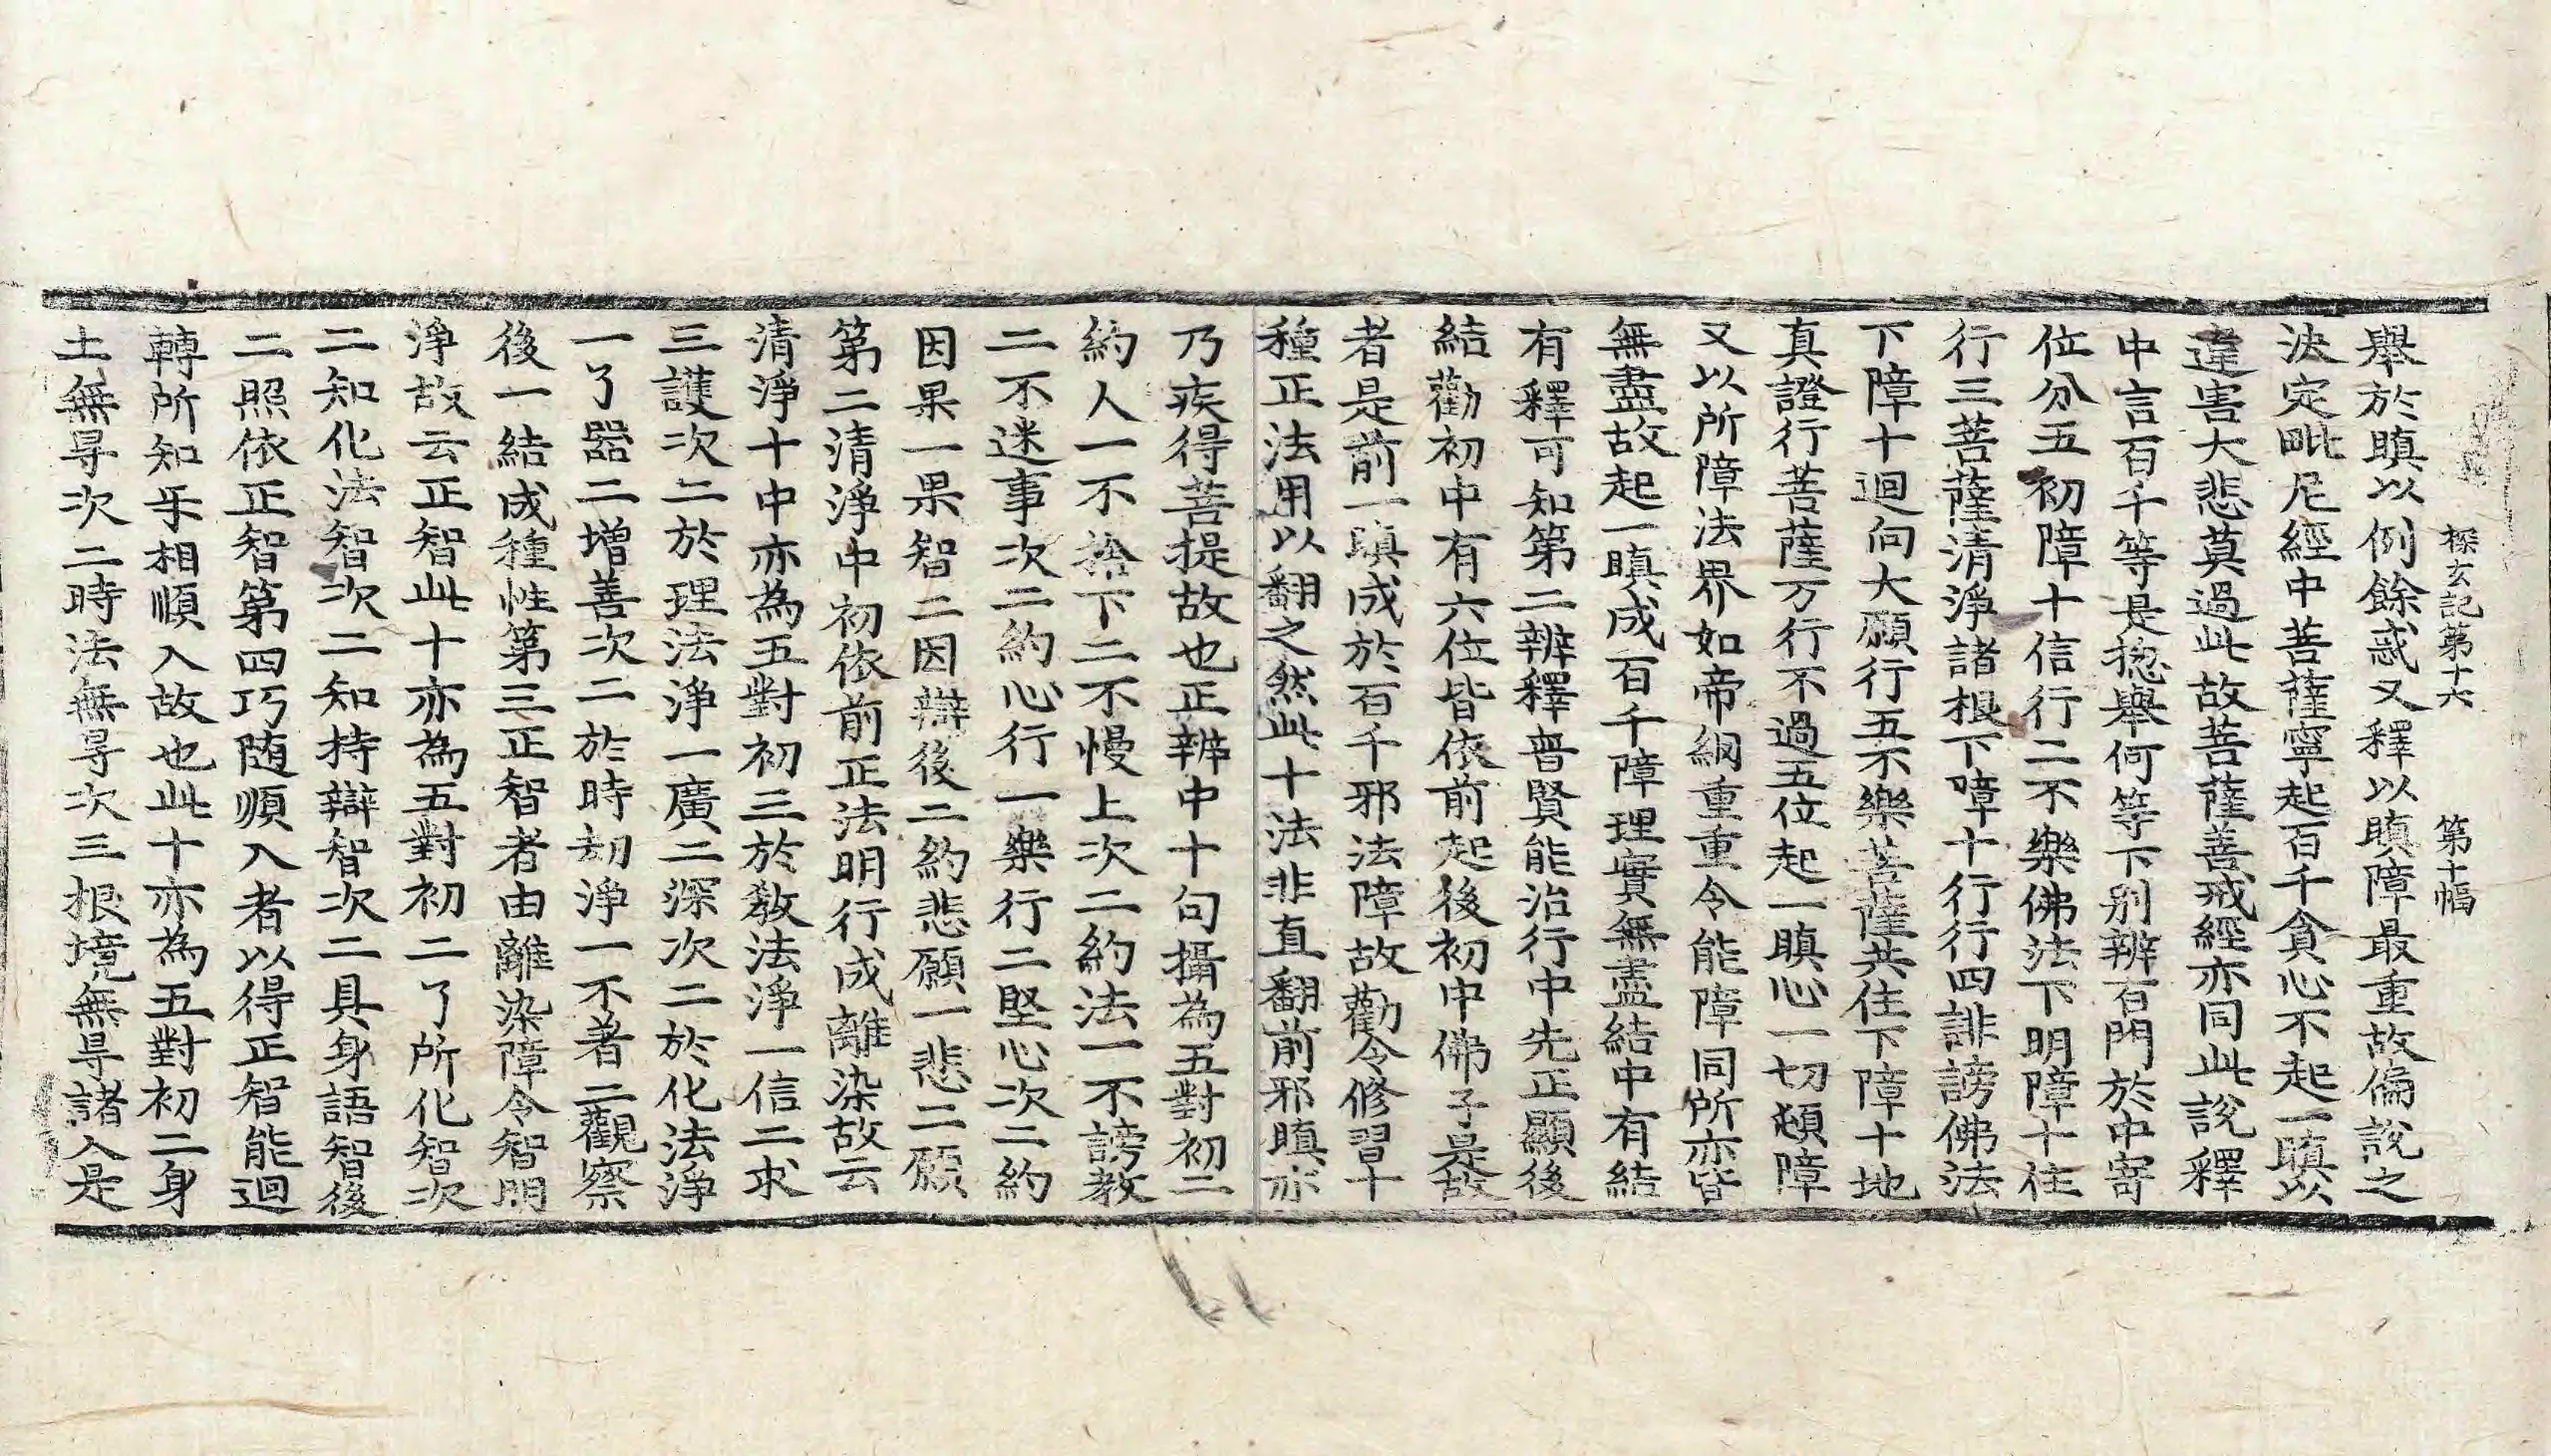 探玄記第十六　第十幅
舉於瞋以例餘惑又釋以瞋障最重故偏說之
決定毗尼經中菩薩寧起百千貪心不起一瞋以
違害大悲莫過此故菩薩善戒經亦同此說釋
中言百千等是惣舉何等下別辨百門於中寄
位分五初障十信行二不樂佛法下明障十住
行三菩薩清淨諸根下障十行行四誹謗佛法
下障十迴向大願行五不樂菩薩共住下障十地
真證行菩薩万行不過五位起一瞋心一切頓障
又以所障法界如帝網重重令能障同所亦皆
無盡故起一瞋成百千障理實無盡結中有結
有釋可知第二辨釋普賢能治行中先正顯後
結勸初中有六位皆依前起後初中佛子是故
者是前一瞋成於百千邪法障故勸令修習十
種正法用以翻之然此十法非直翻前邪瞋亦
乃疾得菩提故也正辨中十句攝為五對初二
約人一不捨下二不慢上次二約法一不謗教
二不迷事次二約心行一樂行二堅心次二約
因果一果智二因辯後二約悲願一悲二願
第二清淨中初依前正法明行成離染故云
清淨十中亦為五對初三於教法淨一信二求
三護次二於理法淨一廣二深次二於化法淨
一了器二增善次二於時劫淨一不著二觀察
後一結成種性第三正智者由離染障令智明
淨故云正智此十亦為五對初二了所化智次
二知化法智次二知持辯智次二具身語智後
二照依正智第四巧随順入者以得正智能迴
轉所知乐相順入故也此十亦為五對初二身
土無㝵次二時法無㝵次三根境無㝵諸入是